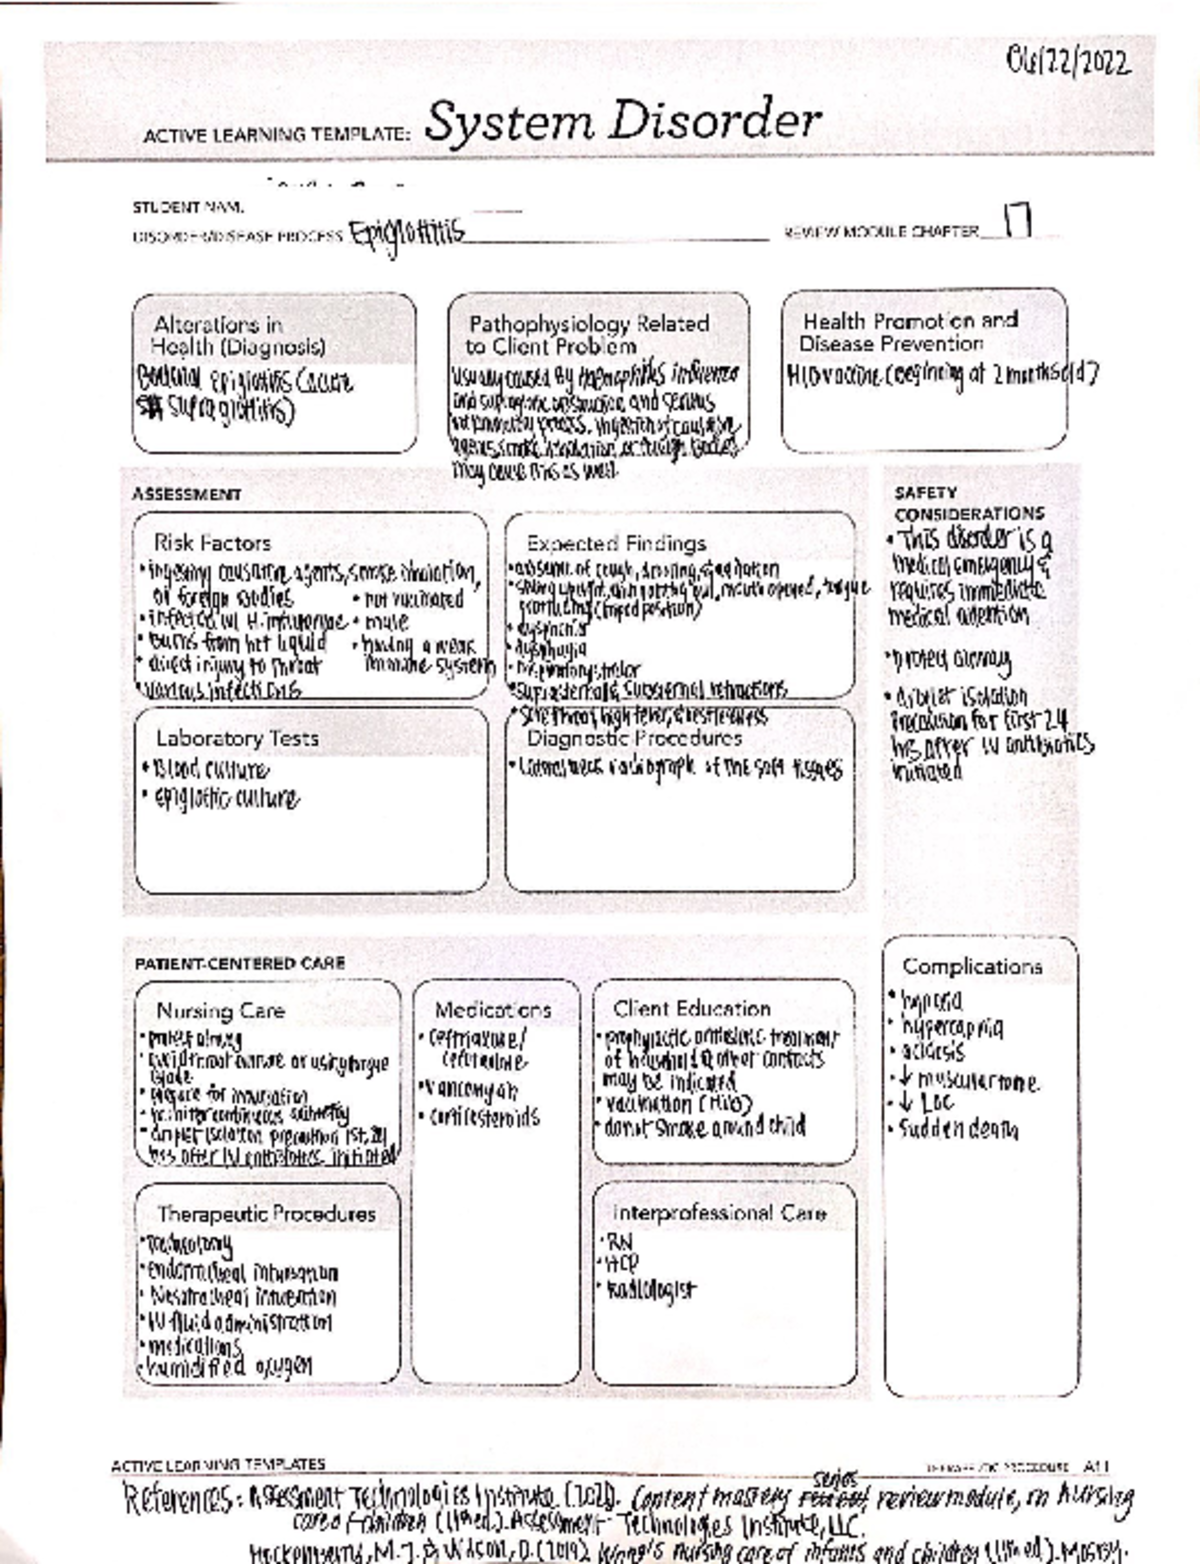 06/22/2022
ACTIVE LEARNING TEMPLATE: System Disorder
STUDENT NAM
DISORDER/DISEASE PROCESS Epiglottitis
REVIEW MODULE CHAPTER 17
Alterations in
Health (Diagnosis)
Bacterial epiglottitis (acute
supraglottitis)
Pathophysiology Related
to Client Problem
usually caused by Haemophilus influenza
and supraglottic obstruction and serious
inflammatory process. Ingestion of causative
agents, smoke inhalation, or foreign bodies
may cause this as well.
Health Promotion and
Disease Prevention
HIB vaccine (beginning at 2 months old)
ASSESSMENT
Risk Factors
• ingesting causative agents, smoke inhalation,
or foreign bodies
• infected w/ H. influenzae
• burns from hot liquid
• direct injury to throat
• various infections
• not vaccinated
• male
• having a weak
immune system
Expected Findings
• absence of cough, drooling, agitation
• sitting upright, chin pointing out, mouth opened, tongue
protruding (tripod position)
• dysphonia
• dysphagia
• inspiratory stridor
• suprasternal & substernal retractions
• sore throat, high fever, & restlessness
Laboratory Tests
• Blood culture
• epiglottic culture
Diagnostic Procedures
• Lateral neck radiograph of the soft tissues
SAFETY
CONSIDERATIONS
• This disorder is a
medical emergency &
requires immediate
medical attention
• protect airway
• droplet isolation
precaution for first 24
hrs after IV antibiotics
initiated
PATIENT-CENTERED CARE
Nursing Care
• protect airway
• avoid throat culture or using tongue
blade
• prepare for intubation
• monitor continuous oximetry
• droplet isolation precaution 1st 24
hrs after IV antibiotics initiated
Medications
• ceftriaxone/
cefotaxime
• vancomycin
• corticosteroids
Client Education
• prophylactic antibiotic treatment
of household & other contacts
may be indicated
• vaccination (HIB)
• don't smoke around child
Complications
• hypoxia
• hypercapnia
• acidosis
• ↓ muscular tone
• ↓ LOC
• sudden death
Therapeutic Procedures
• tracheotomy
• endotracheal intubation
• Nasotracheal intubation
• IV fluid administration
• medications
• humidified oxygen
Interprofessional Care
• RN
• HCP
• Radiologist
ACTIVE LEARNING TEMPLATES
THERAPEUTIC PROCEDURE A11
References: Assessment Technologies Institute. Content mastery series review module, rn nursing
care of children Assessment Technologies Institute, LLC.
Hockenberry, M.J. & Wilson, D. (2019). Wong's nursing care of infants and children Mosby.